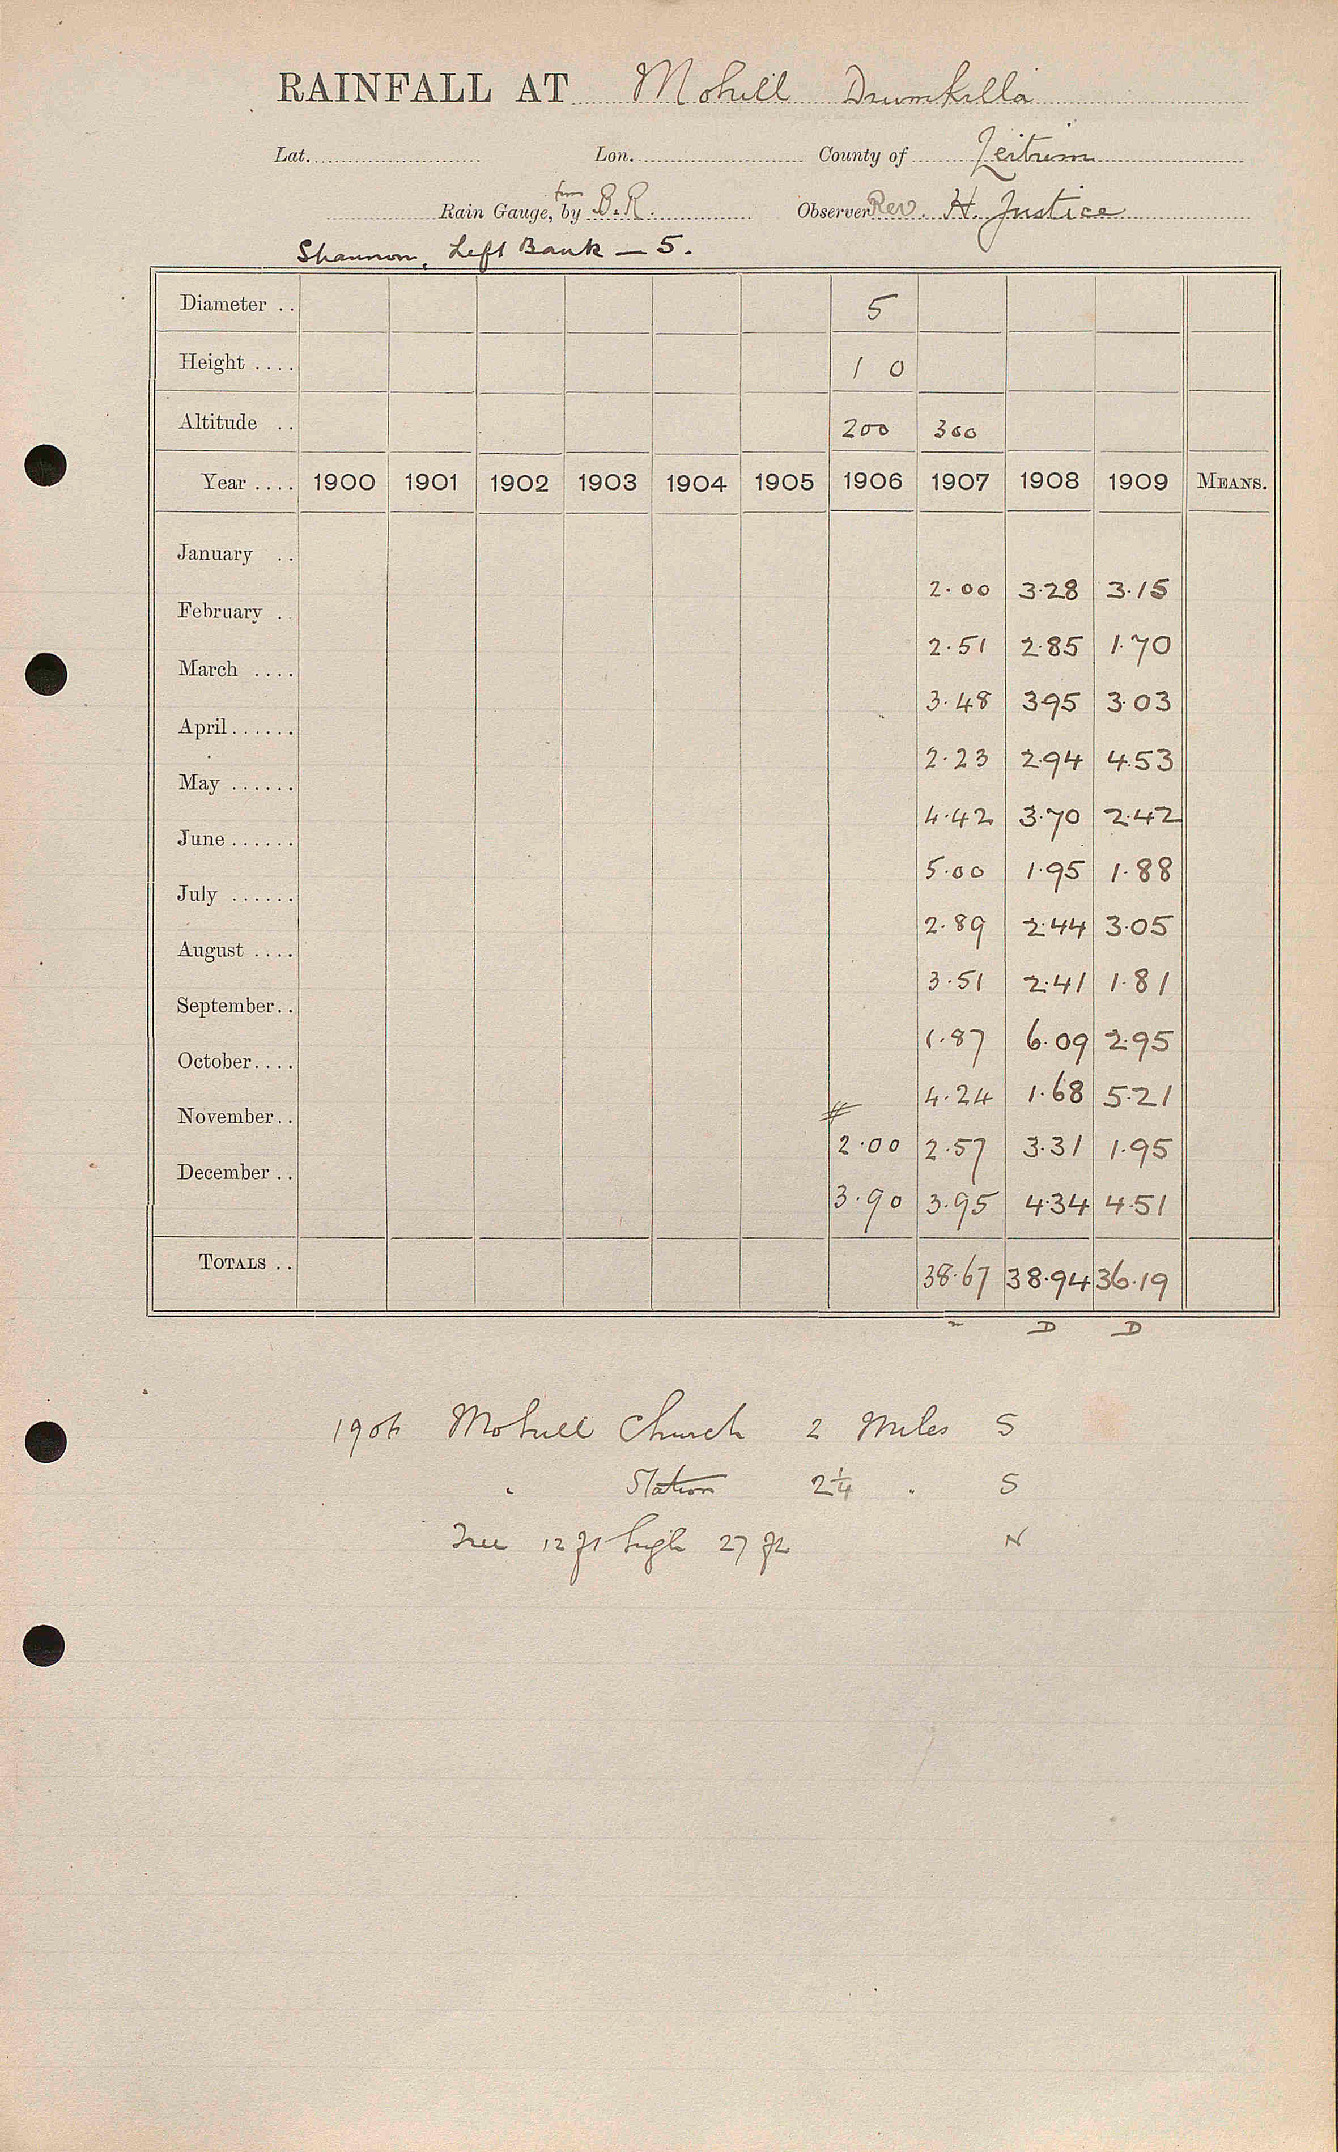 RAINFALL AT Mohill Drumkilla
Lat. Lon. County of Leitrim
Rain Gauge, by from B.R. Observer Rev. H. Justice
Shannon, Left Bank — 5.
Diameter .. 5
Height .... 1 0
Altitude .. 200 300
Year .... 1900 1901 1902 1903 1904 1905 1906 1907 1908 1909 MEANS.
January ..
2.00 3.28 3.15
February ..
2.51 2.85 1.70
March ....
3.48 3.95 3.03
April ......
2.23 2.94 4.53
May ......
4.42 3.70 2.42
June ......
5.00 1.95 1.88
July ......
2.89 2.44 3.05
August ....
3.51 2.41 1.81
September ..
1.87 6.09 2.95
October ....
4.24 1.68 5.21
November ..
2.00 2.57 3.31 1.95
December ..
3.90 3.95 4.34 4.51
TOTALS .. 38.67 38.94 36.19
D D
1906 Mohill Church 2 Miles S
" Station 2¼ " S
Tree 12 ft high 27 ft N